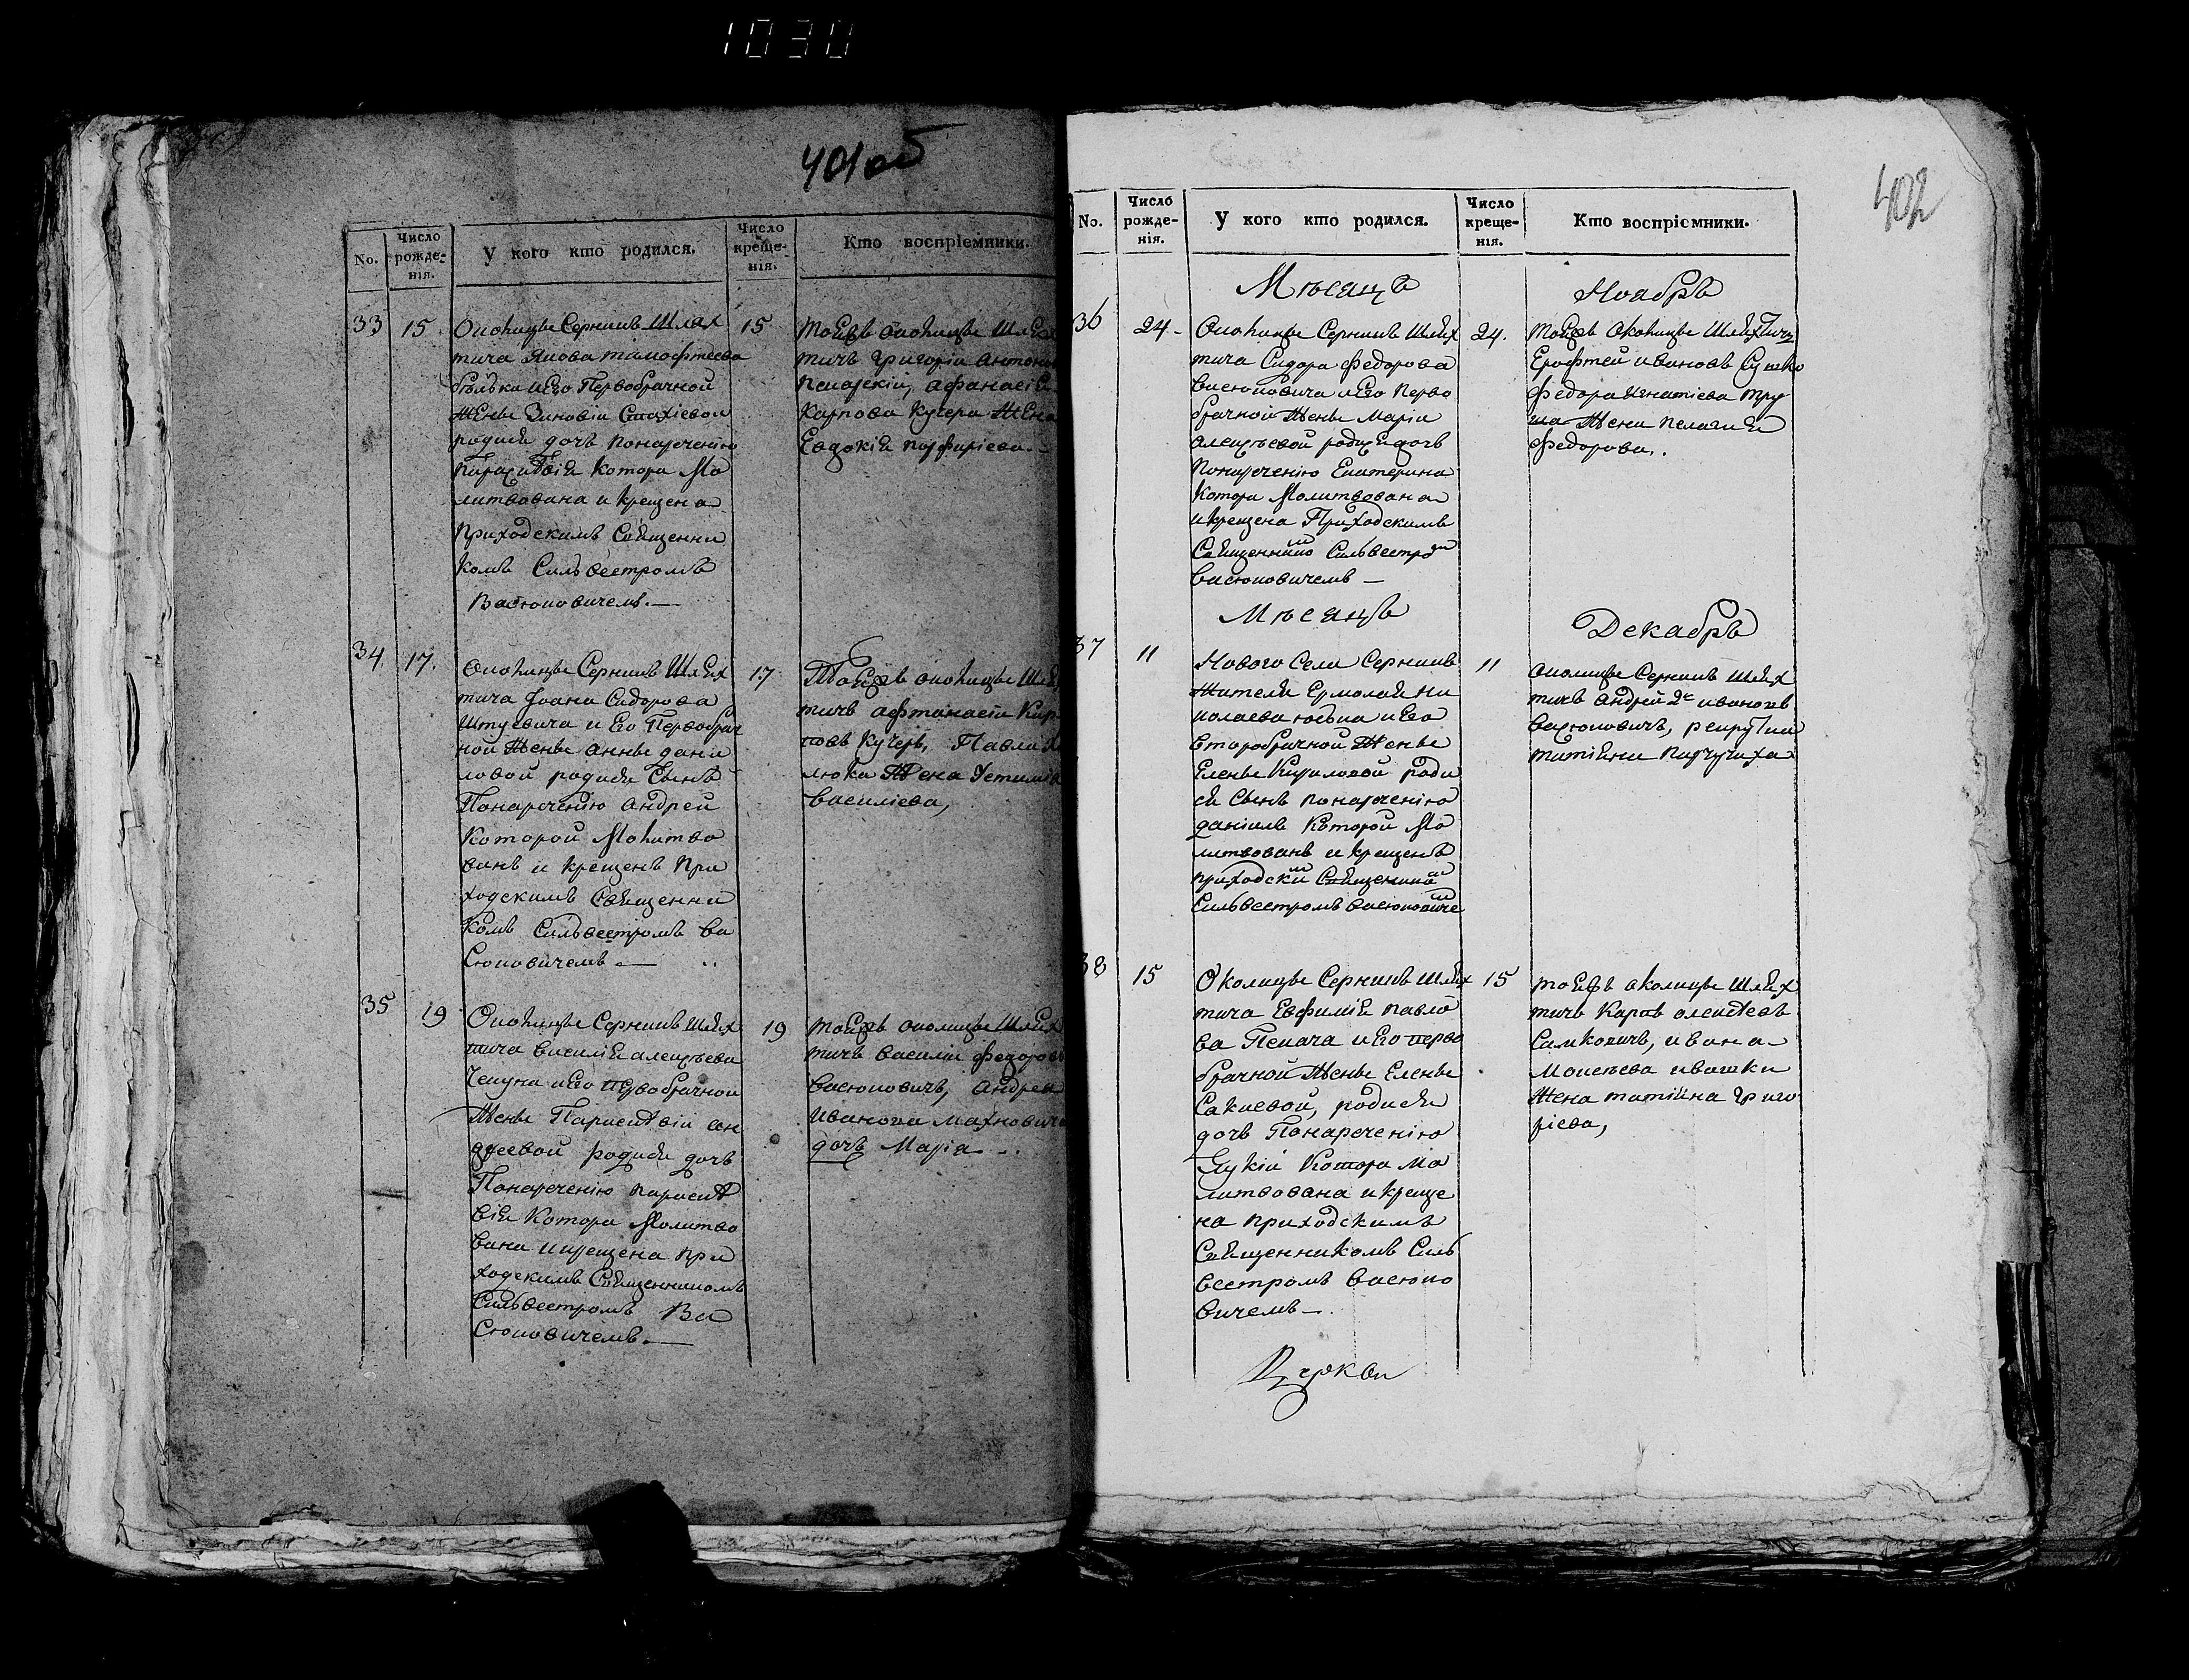 1030
401 об
No.
Число рожде-нія.
У кого кто родился.
Число креще-нія.
Кто воспріемники.
33
15
Околицы Серникъ Шлях
тича Якова тимофтеева
бѣлька и Его Первобрачной
Женѣ Зиновіи
родися дочъ Понареченію
котора Мо
литвована и крещена
Приходскимъ Священни
комъ Силвестромъ
Васюковичемъ.
15
тоейжъ околицы
тичъ Григорій
афанасія
Карпова Кучера Жена
Евдокія порфиріева.
34
17.
Околицы Серникъ Шлях
тича Іоана Сидорова
и Его Первобрач
ной Женѣ Аннѣ дани
ловой родися Сынъ
Понареченію Андрей
Которой Молитво
ванъ и крещенъ При
ходскимъ Священни
комъ Силвестромъ Ва
сюковичемъ
17
Тоейжъ околицы
тичъ афтанасій Кар
повъ Кучеръ, Павла
люка Жена
василіева,
35
19
Околицы Серникъ Шлях
тича Василія алексѣева
и Его первобрачной
Женѣ
дреевой родися дочъ
Понареченію
Котора Молитво
вана и крещена при
ходскимъ Священникомъ
Силвестромъ Ва
сюковичемъ.
19
тоейжъ околицы Шлях
тичъ василій федоровъ
Васюковичъ, Андрея
Иванова Махновича
дочъ Марія
402
No.
Число рожде-нія.
У кого кто родился.
Число креще-нія.
Кто воспріемники.
Мѣсяцъ
Ноябрь
36
24
Околицы Серникъ Шлях
тича Сидора Федорова
Васюковича и Его Перво
брачной Женѣ Маріи
алексѣевой родися дочъ
Понареченію Екатерина
Котора Молитвована
и крещена Приходскимъ
Священнико Сильвестро
Васюковичемъ
24.
тоейжъ Околицы Шляхтичъ
Ерофтей ивановъ Сушко
федора игнатіева тру
ша Жена пелагия
федорова.
Мѣсяцъ
Декабрь
37
11
Нового Села Серникъ
Жителя Ермолая ни
колаева и Его
второбрачной Женѣ
Еленѣ Кириловой роди
ся Сынъ понареченію
даніилъ Которой Мо
литвованъ и крещенъ
приходски Священико
Силвестромъ васюковиче
11
околицы Серникъ Шлях
тичъ Андрей 2й ивановъ
Васюковичъ,
38
15
Околицы Серникъ Шлях
тича Евфимія Павло
ва и Его перво
брачной Женѣ Еленѣ
Сакиевой, родися
дочъ Понареченію
Лукія Котора мо
литвована и креще
на приходскимъ
Священникомъ Силь
вестромъ васюко
вичемъ
15
тоейжъ околицы Шлях
тичъ Карпъ
Симковичъ, ивана
Моисѣева ивашки
Жена татіяна Григо
ріева,
Церкви